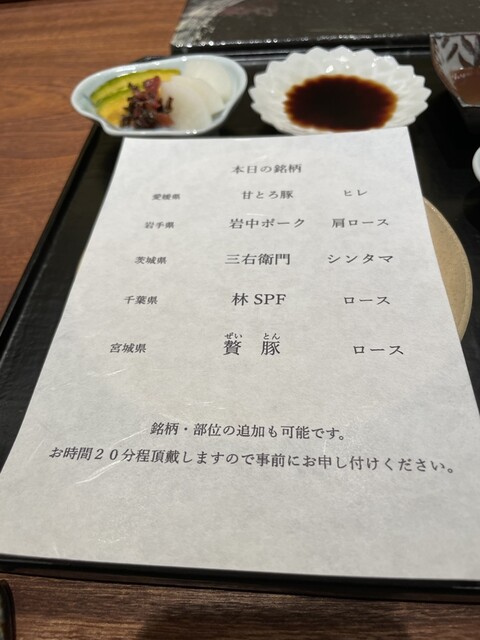 本日の銘柄
愛媛県 甘とろ豚 ヒレ
岩手県 岩中ポーク 肩ロース
茨城県 三右衛門 シンタマ
千葉県 林SPF ロース
ぜい とん
宮城県 贅豚 ロース
銘柄・部位の追加も可能です。
お時間20分程頂戴しますので事前にお申し付けください。